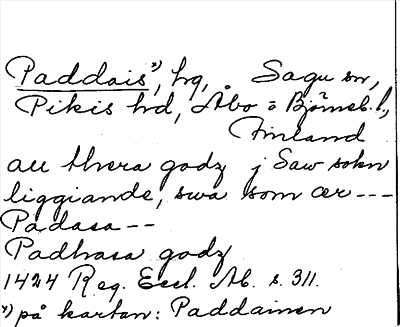 Paddais*), hg, Sagu sn,
Pikis hd, Åbo o Björneb. l.,
Finland
all thera godz j Saw sokn
liggiande, swa som ær ---
Padasa --
Padhasa godz
1424 Reg. Eccl. Ab. s. 311.
*) på kartan: Paddainen